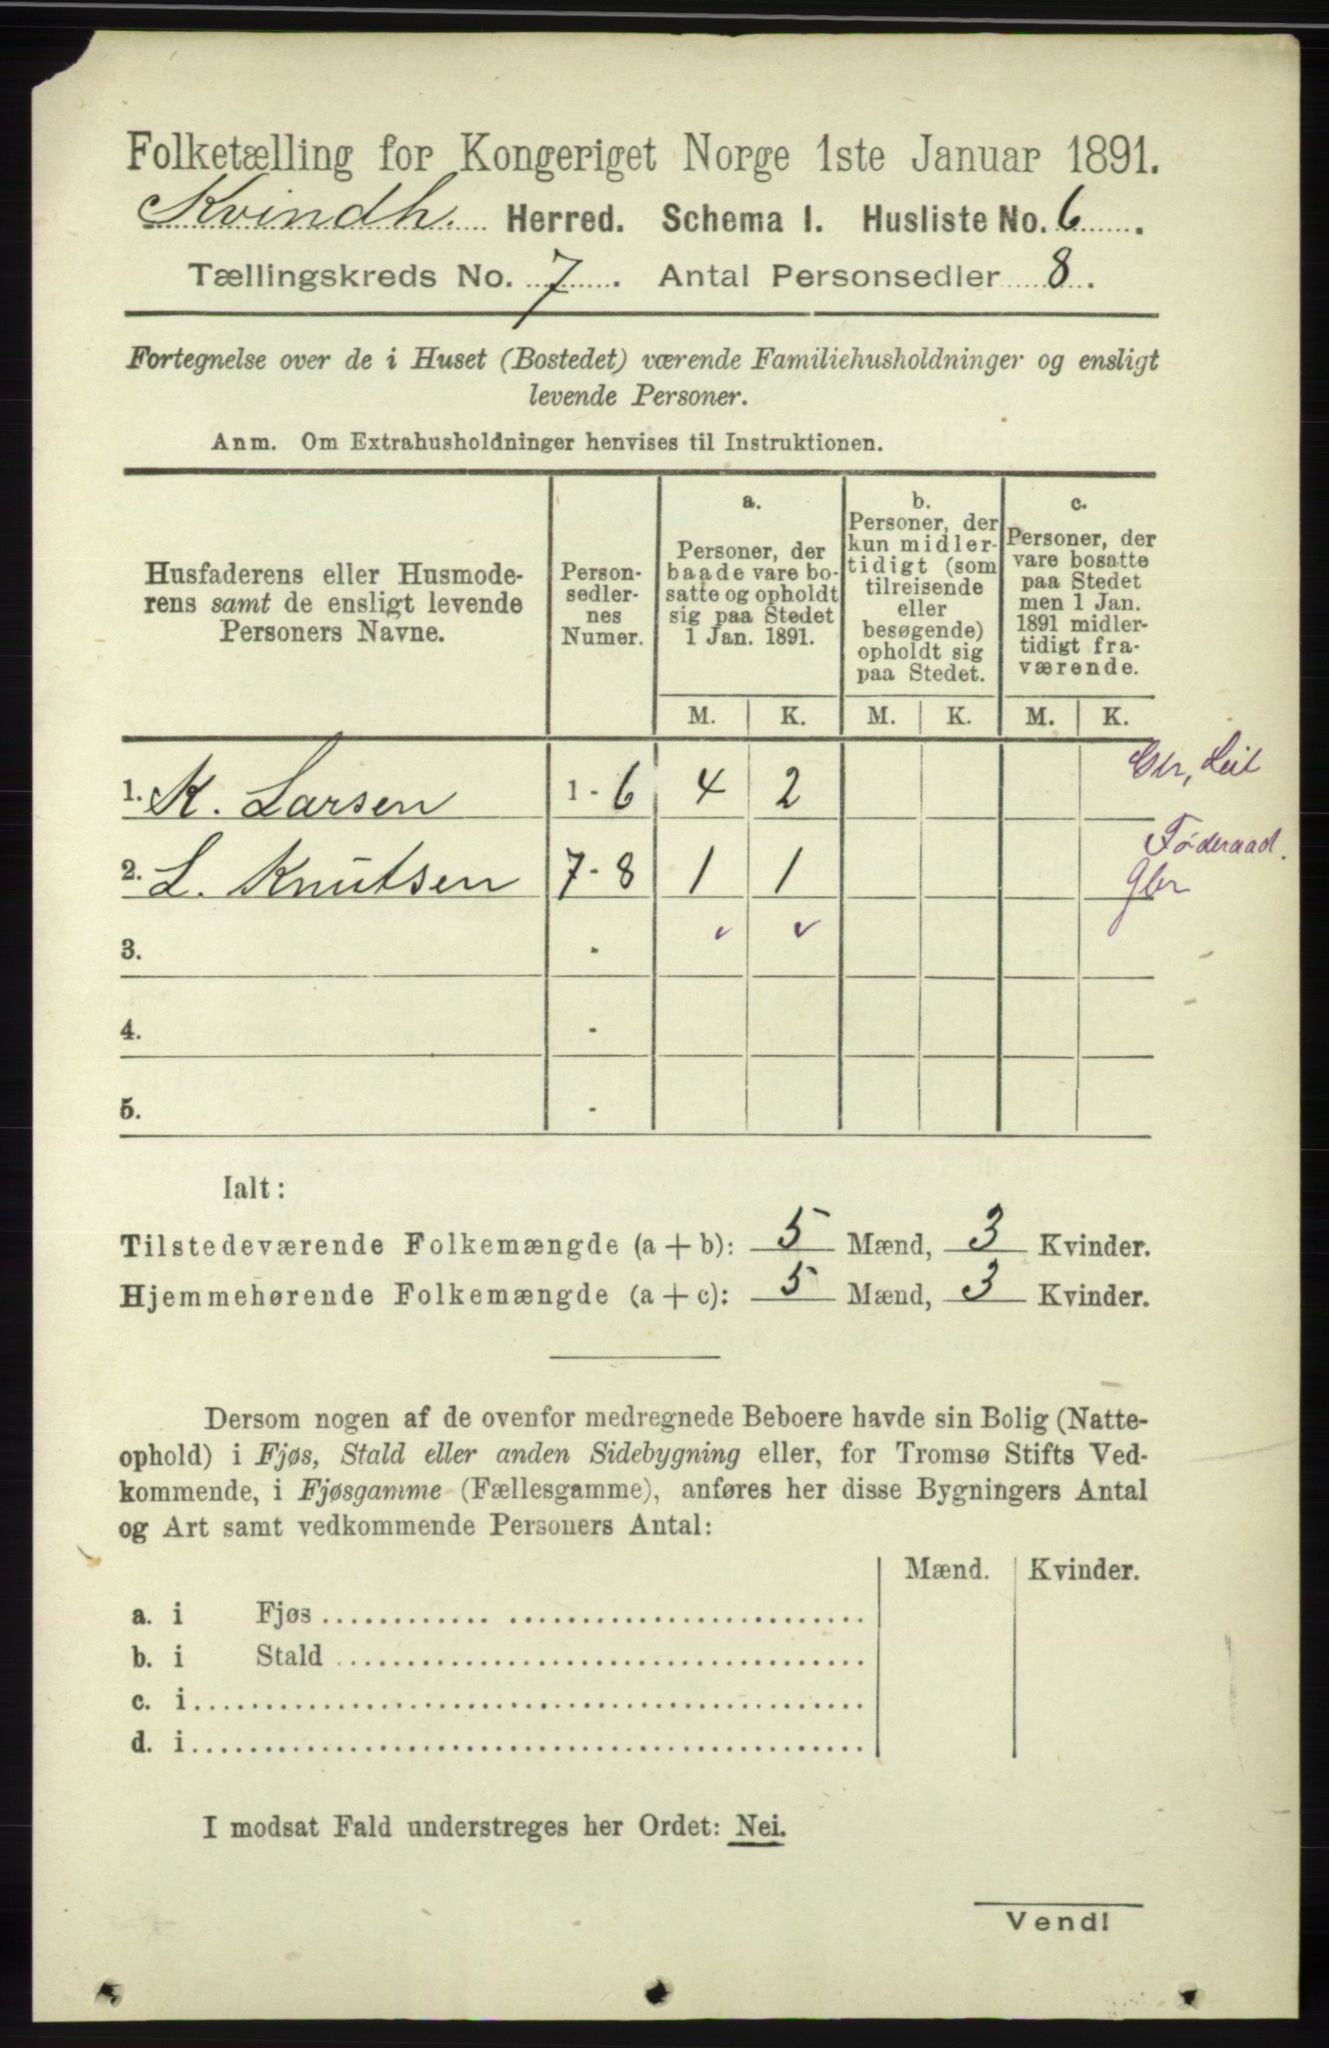 Folketælling for Kongeriget Norge 1ste Januar 1891.
Kvindh. Herred. Schema 1. Husliste No. 6.
Tællingskreds No. 7. Antal Personsedler 8.
Fortegnelse over de i Huset (Bostedet) værende Familiehusholdninger og ensligt
levende Personer.
Anm. Om Extrahusholdninger henvises til Instruktionen.
Husfaderens eller Husmode-
rens samt de ensligt levende
Personers Navne.
Person-
sedler-
nes
Numer.
a.
Personer, der
baade vare bo-
satte og opholdt
sig paa Stedet
1 Jan. 1891.
b.
Personer, der
kun midler-
tidigt (som
tilreisende
eller
besøgende)
opholdt sig
paa Stedet.
c.
Personer, der
vare bosatte
paa Stedet
men 1 Jan.
1891 midler-
tidigt fra-
værende.
M. K. M. K. M. K.
1. K. Larsen 1 - 6 4 2
2. L. Knutsen 7 - 8 1 1 Føderaad.
3. -
4. -
5. -
Ialt:
Tilstedeværende Folkemængde (a + b): 5 Mænd, 3 Kvinder.
Hjemmehørende Folkemængde (a + c): 5 Mænd, 3 Kvinder.
Dersom nogen af de ovenfor medregnede Beboere havde sin Bolig (Natte-
ophold) i Fjøs, Stald eller anden Sidebygning eller, for Tromsø Stifts Ved-
kommende, i Fjøsgamme (Fællesgamme), anføres her disse Bygningers Antal
og Art samt vedkommende Personers Antal:
Mænd. Kvinder.
a. i Fjøs
b. i Stald
c. i
d. i
I modsat Fald understreges her Ordet: Nei.
Vend!